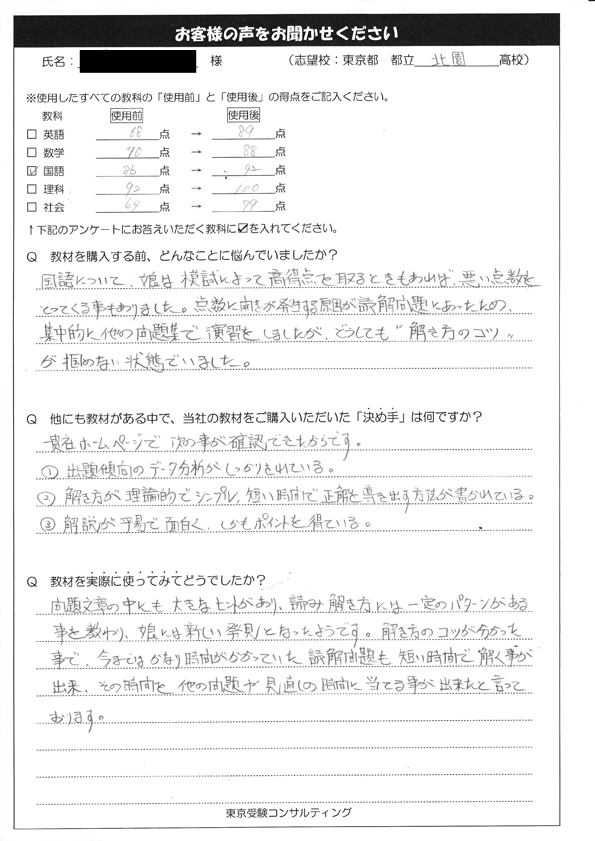 お客様の声をお聞かせください
氏名： 様 （志望校：東京都 都立 北園 高校）
※使用したすべての教科の「使用前」と「使用後」の得点をご記入ください。
教科 使用前 使用後
□ 英語 68 点 → 89 点
□ 数学 70 点 → 88 点
☑ 国語 86 点 → 92 点
□ 理科 92 点 → 100 点
□ 社会 64 点 → 79 点
↑下記のアンケートにお答えいただく教科に☑を入れてください。
Q 教材を購入する前、どんなことに悩んでいましたか？
国語について、娘は模試によって高得点を取るときもあれば、悪い点数を
とってくる事もありました。点数に開きが発生する原因が読解問題にあったため、
集中的に他の問題集で演習をしましたが、どうしても“解き方のコツ”
が掴めない状態でいました。
Q 他にも教材がある中で、当社の教材をご購入いただいた「決め手」は何ですか？
貴社ホームページで次の事が確認できたからです。
① 出題傾向のデータ分析がしっかりされている。
② 解き方が理論的でシンプル、短い時間で正解を導き出す方法が書かれている。
③ 解説が平易で面白く、しかもポイントを得ている。
Q 教材を実際に使ってみてどうでしたか？
問題文章の中にも大きなヒントがあり、読み解き方には一定のパターンがある
事を教わり、娘には新しい発見となったようです。解き方のコツが分かった
事で、今まではかなり時間がかかっていた読解問題も短い時間で解く事が
出来、その時間を他の問題や見直しの時間に当てる事が出来たと言って
おります。
東京受験コンサルティング